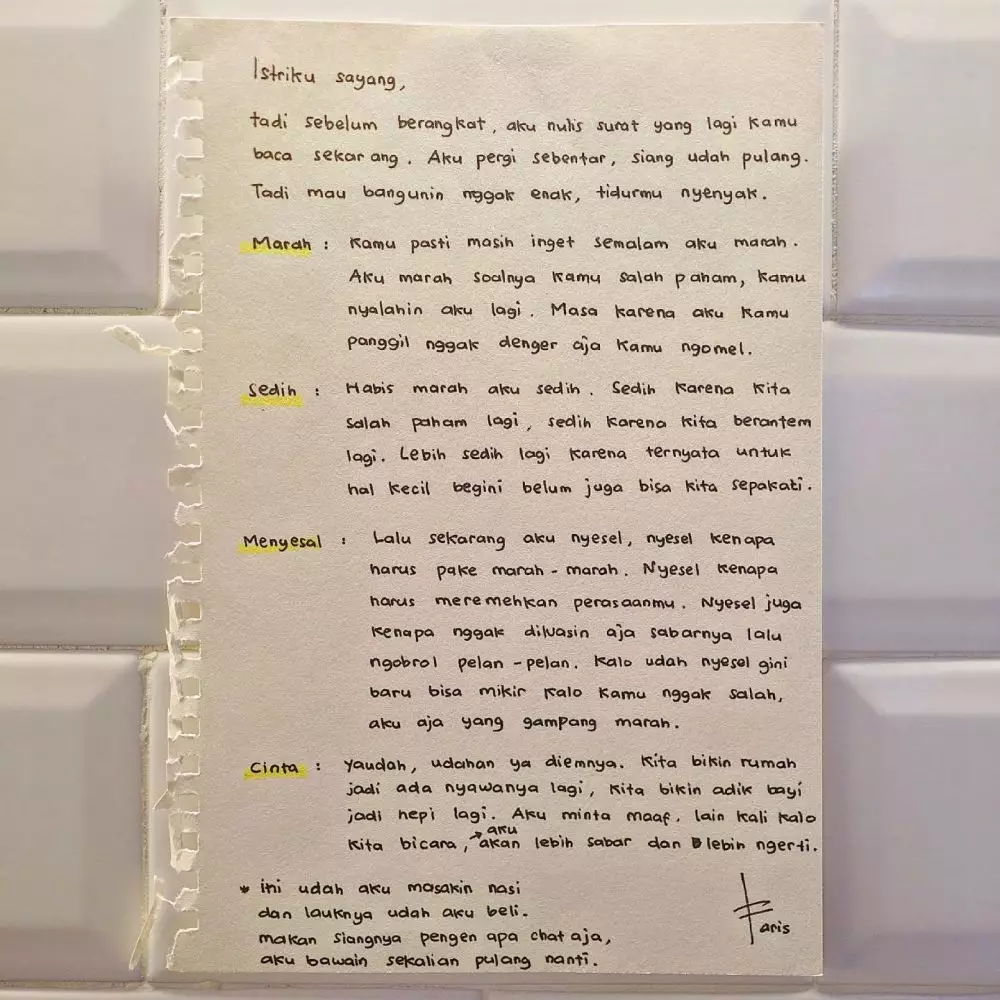 Istriku sayang,
tadi sebelum berangkat, aku nulis surat yang lagi kamu
baca sekarang. Aku pergi sebentar, siang udah pulang.
Tadi mau bangunin nggak enak, tidurmu nyenyak.
Marah : Kamu pasti masih inget semalam aku marah.
Aku marah soalnya kamu salah paham, kamu
nyalahin aku lagi. Masa karena aku kamu
panggil nggak denger aja kamu ngomel.
Sedih : Habis marah aku sedih. Sedih karena kita
salah paham lagi, sedih karena kita berantem
lagi. Lebih sedih lagi karena ternyata untuk
hal kecil begini belum juga bisa kita sepakati.
Menyesal : Lalu sekarang aku nyesel, nyesel kenapa
harus pake marah-marah. Nyesel kenapa
harus meremehkan perasaanmu. Nyesel juga
kenapa nggak diluasin aja sabarnya lalu
ngobrol pelan-pelan. Kalo udah nyesel gini
baru bisa mikir kalo kamu nggak salah,
aku aja yang gampang marah.
Cinta : Yaudah, udahan ya diemnya. Kita bikin rumah
jadi ada nyawanya lagi, kita bikin adik bayi
jadi hepi lagi. Aku minta maaf, lain kali kalo
kita bicara, aku akan lebih sabar dan lebih ngerti.
* ini udah aku masakin nasi
dan lauknya udah aku beli.
makan siangnya pengen apa chat aja,
aku bawain sekalian pulang nanti.
Faris